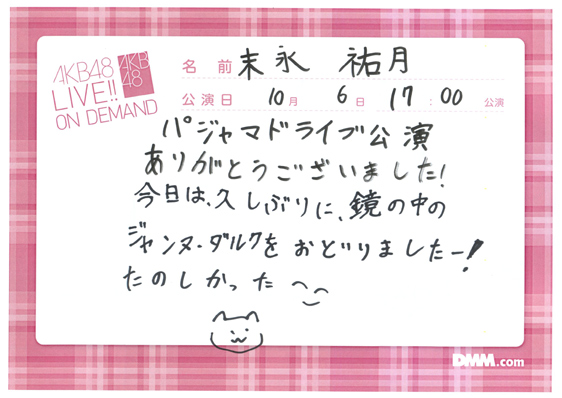 AKB48
LIVE!!
ON DEMAND
AKB
48
名前 末永 祐月
公演日 10月 6日 17:00 公演
パジャマドライブ公演
ありがとうございました!
今日は、久しぶりに、鏡の中の
ジャンヌ・ダルクを おどりましたー!
たのしかった
DMM.com